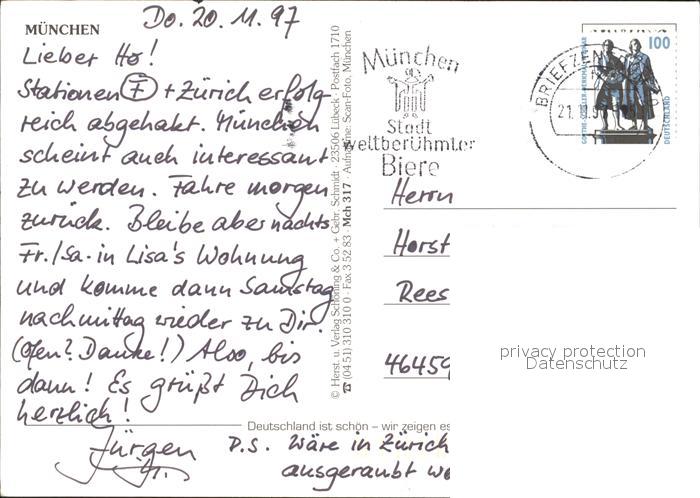 Do. 20.11.97
MÜNCHEN
Lieber Ho!
Stationen F + Zürich erfolg-
reich abgehakt. München
scheint auch interessant
zu werden. Fahre morgen
zurück. Bleibe aber nachts
Fr./Sa. in Lisa's Wohnung
und komme dann Samstag
nachmittag wieder zu Dir.
(Ofen? Danke!) Also, bis
dann! Es grüßt Dich
herzlich!
Jürgen
P.S. Wäre in Zürich
ausgeraubt we
© Herst. u. Verlag Schöning & Co. + Gebr. Schmidt · 23506 Lübeck · Postfach 1710
☎ (04 51) 310 310 0 · Fax 3 52 83 · Mch 317 · Aufnahme: Scan-Foto, München
Deutschland ist schön – wir zeigen es
München
Stadt
weltberühmter
Biere
BRIEFZEN
21.11.9
100
GOETHE-SCHILLER-DENKMAL WEIMAR
DEUTSCHLAND
Herrn
Horst
Rees
46459
privacy protection
Datenschutz